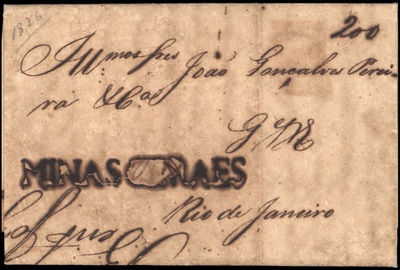 1826
200
Illmos Snres João Gonçalves Perei-
ra & Ca
G de M
MINAS RAES
Rio de Janeiro